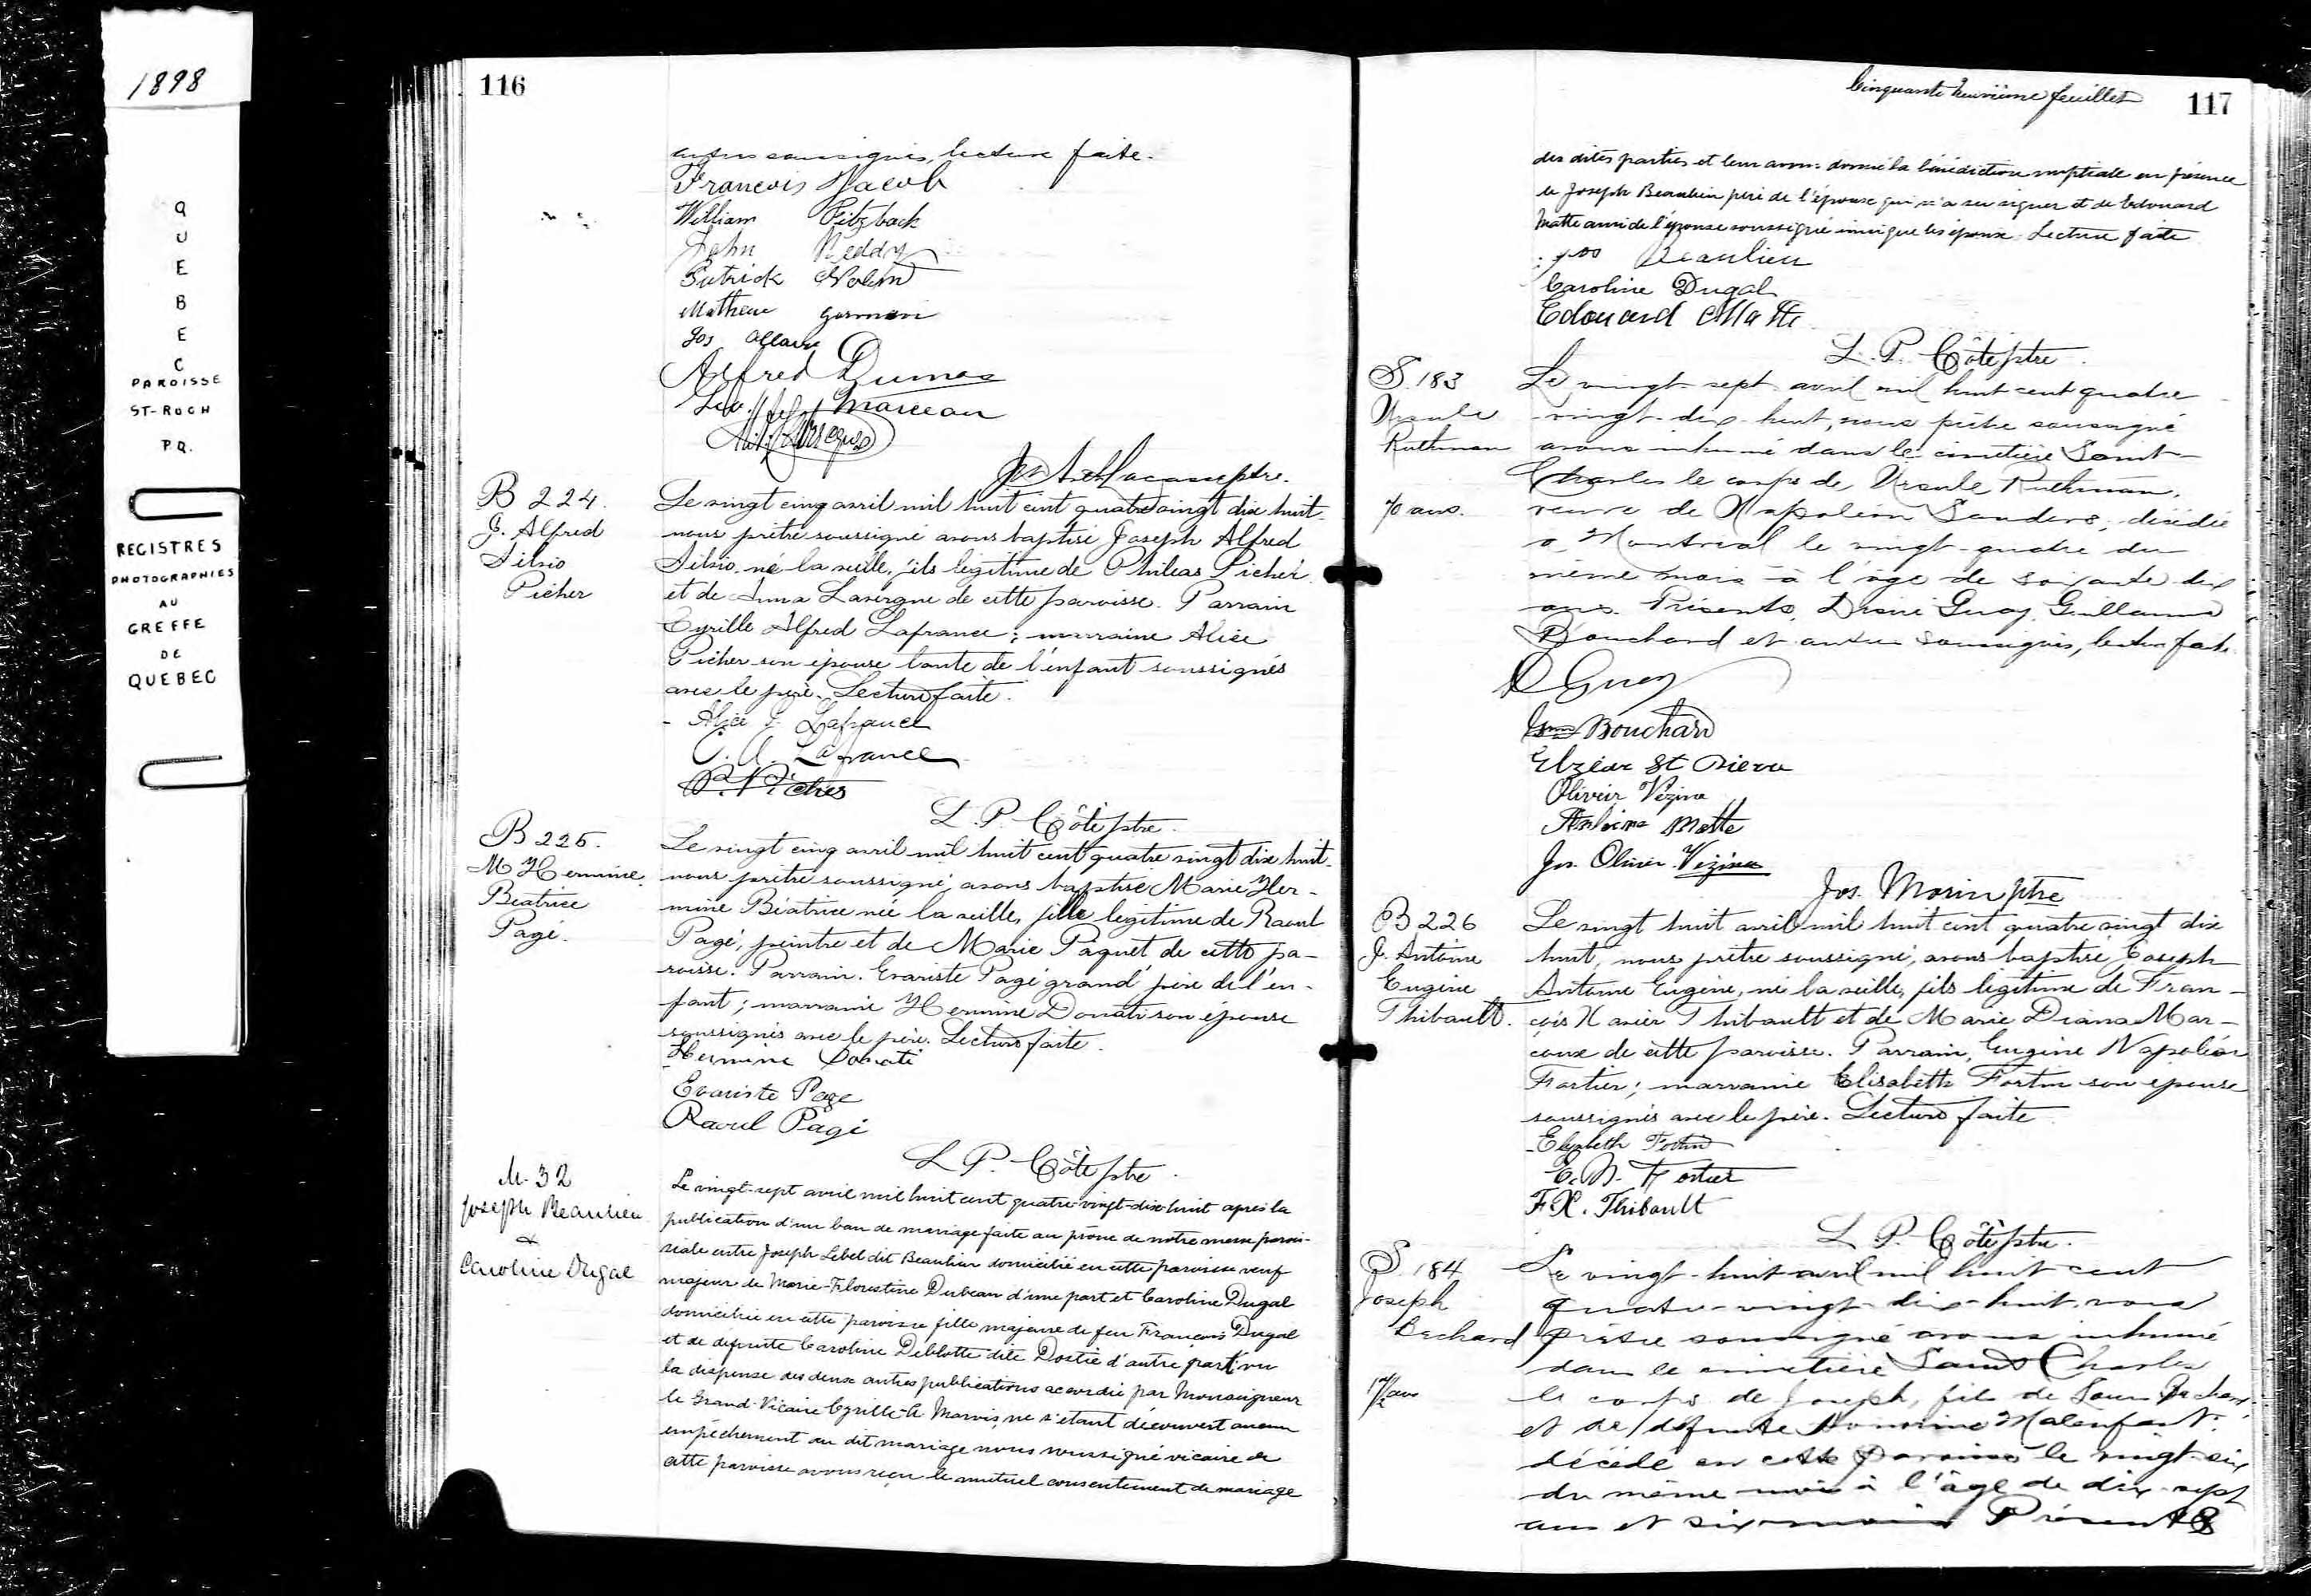 1898
Q
U
E
B
E
C
PAROISSE
ST-ROCH
P.Q.
REGISTRES
PHOTOGRAPHIES
AU
GREFFE
DE
QUEBEC
116
soussignés, lecture faite.
François Jacob
William Pitzback
John Reddy
Patrick Nolin
Mathew Gorman
Jos Allaire
Alfred Dumas
Marceau
ptre.
B 224.
J. Alfred
Silvio
Picher
Le vingt cinq avril mil huit cent quatre vingt dix huit
nous prêtre soussigné avons baptisé Joseph Alfred
Silvio né la veille, fils légitime de Phileas Picher
et de Anna Lavergne de cette paroisse. Parrain
Cyrille Alfred Lafrance; marraine Alice
Picher son épouse tante de l'enfant soussignés
avec le père. Lecture faite.
Alice P. Lafrance
C. A. Lafrance
P. Picher
L. P. Côté ptre.
B 225.
M Hermine
Béatrice
Pagé.
Le vingt cinq avril mil huit cent quatre vingt dix huit
nous prêtre soussigné, avons baptisé Marie Her-
mine Béatrice née la veille, fille légitime de Raoul
Pagé, peintre et de Marie Paquet de cette pa-
roisse. Parrain. Evariste Pagé grand'père de l'en-
fant; marraine Hermine Donati son épouse
soussignés avec le père. Lecture faite.
Hermine Donati
Evariste Page
Raoul Pagé
L. P. Côté ptre.
M. 32
Joseph Beaulieu
&
Caroline Dugal
Le vingt-sept avril mil huit cent quatre-vingt-dix-huit après la
publication d'un ban de mariage faite au prône de notre messe parois-
siale entre Joseph Lebel dit Beaulieu domicilié en cette paroisse veuf
majeur de Marie-Florestine Dubeau d'une part et Caroline Dugal
domiciliée en cette paroisse fille majeure de feu François Dugal
et de defunte Caroline Deblotte dite Dostie d'autre part; vu
la dispense des deux autres publications accordée par Monseigneur
le Grand-Vicaire Cyrille-A. Marois, ne s'étant découvert aucun
empêchement au dit mariage nous soussigné vicaire de
cette paroisse avons reçu le mutuel consentement de mariage
Cinquante neuvième feuillet
117
des dites parties et leur avons donné la bénédiction nuptiale en présence
de Joseph Beaulieu père de l'époux qui n'a su signer et de Edouard
Matte ami de l'épouse soussigné ainsi que les époux. Lecture faite
Jos Beaulieu
Caroline Dugal
Edouard Matte
L. P. Côté ptre.
S. 183
Ursule
Ruthman
70 ans.
Le vingt-sept avril mil huit cent quatre
vingt-dix-huit, nous prêtre soussigné
avons inhumé dans le cimetière Saint-
Charles le corps de Ursule Ruthman,
veuve de Napoléon Sanders, décédée
à Montréal le vingt-quatre du
même mois à l'âge de soixante-dix
ans. Présents, Désiré Guay, Guillaume
Bouchard et autres soussignés, lecture faite.
D Guay
Bouchard
Elzéar St Pierre
Olivier Vézina
Antoine Matte
Jos. Olivier Vézina
Jos. Morin ptre
B 226
J. Antoine
Eugène
Thibault.
Le vingt huit avril mil huit cent quatre vingt dix
huit, nous prêtre soussigné, avons baptisé, Joseph
Antoine Eugène, né la veille, fils légitime de Fran-
çois Xavier Thibault et de Marie Diana Mar-
coux de cette paroisse. Parrain, Eugène Napoléon
Fortier; marraine Elisabeth Fortin son épouse
soussignés avec le père. Lecture faite
Elizabeth Fortin
E. N. Fortier
F. X. Thibault
L. P. Côté ptre.
S. 184
Joseph
Bechard
17 1/2 ans
Le vingt-huit avril mil huit cent
quatre-vingt-dix-huit, nous
prêtre soussigné avons inhumé
dans le cimetière Saint Charles
le corps de Joseph, fils de Louis Bechard
et de défunte Malenfant.
décédé en cette paroisse le vingt-six
du même mois à l'âge de dix-sept
ans et six mois Présents